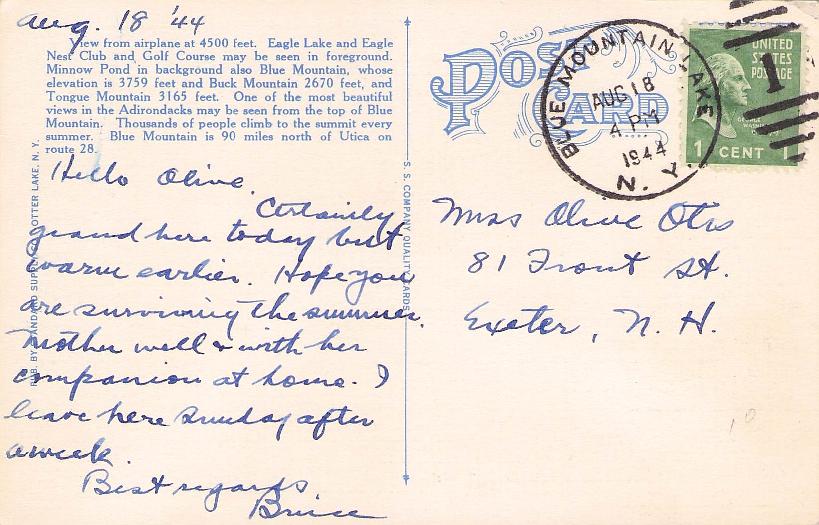 Aug. 18 '44
View from airplane at 4500 feet. Eagle Lake and Eagle
Nest Club and Golf Course may be seen in foreground.
Minnow Pond in background also Blue Mountain, whose
elevation is 3759 feet and Buck Mountain 2670 feet, and
Tongue Mountain 3165 feet. One of the most beautiful
views in the Adirondacks may be seen from the top of Blue
Mountain. Thousands of people climb to the summit every
summer. Blue Mountain is 90 miles north of Utica on
route 28.
Hello Olive.
Certainly
grand here today but
warm earlier. Hope you
are surviving the summer.
Mother well & with her
companion at home. I
leave here Sunday after
a week
Best regards
Bruce
PUB. BY STANDARD SUPPLY CO., OTTER LAKE, N. Y.
S. S. COMPANY QUALITY CARDS
POST
CARD
BLUE MOUNTAIN LAKE
AUG 18
4 PM
1944
N. Y.
UNITED
STATES
POSTAGE
1
GEORGE
1 CENT 1
Miss Olive Otis
81 Front St.
Exeter, N. H.
10